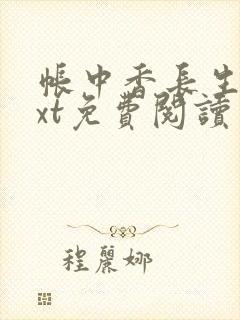 帳中香長生
xt免費閱讀
程麗娜